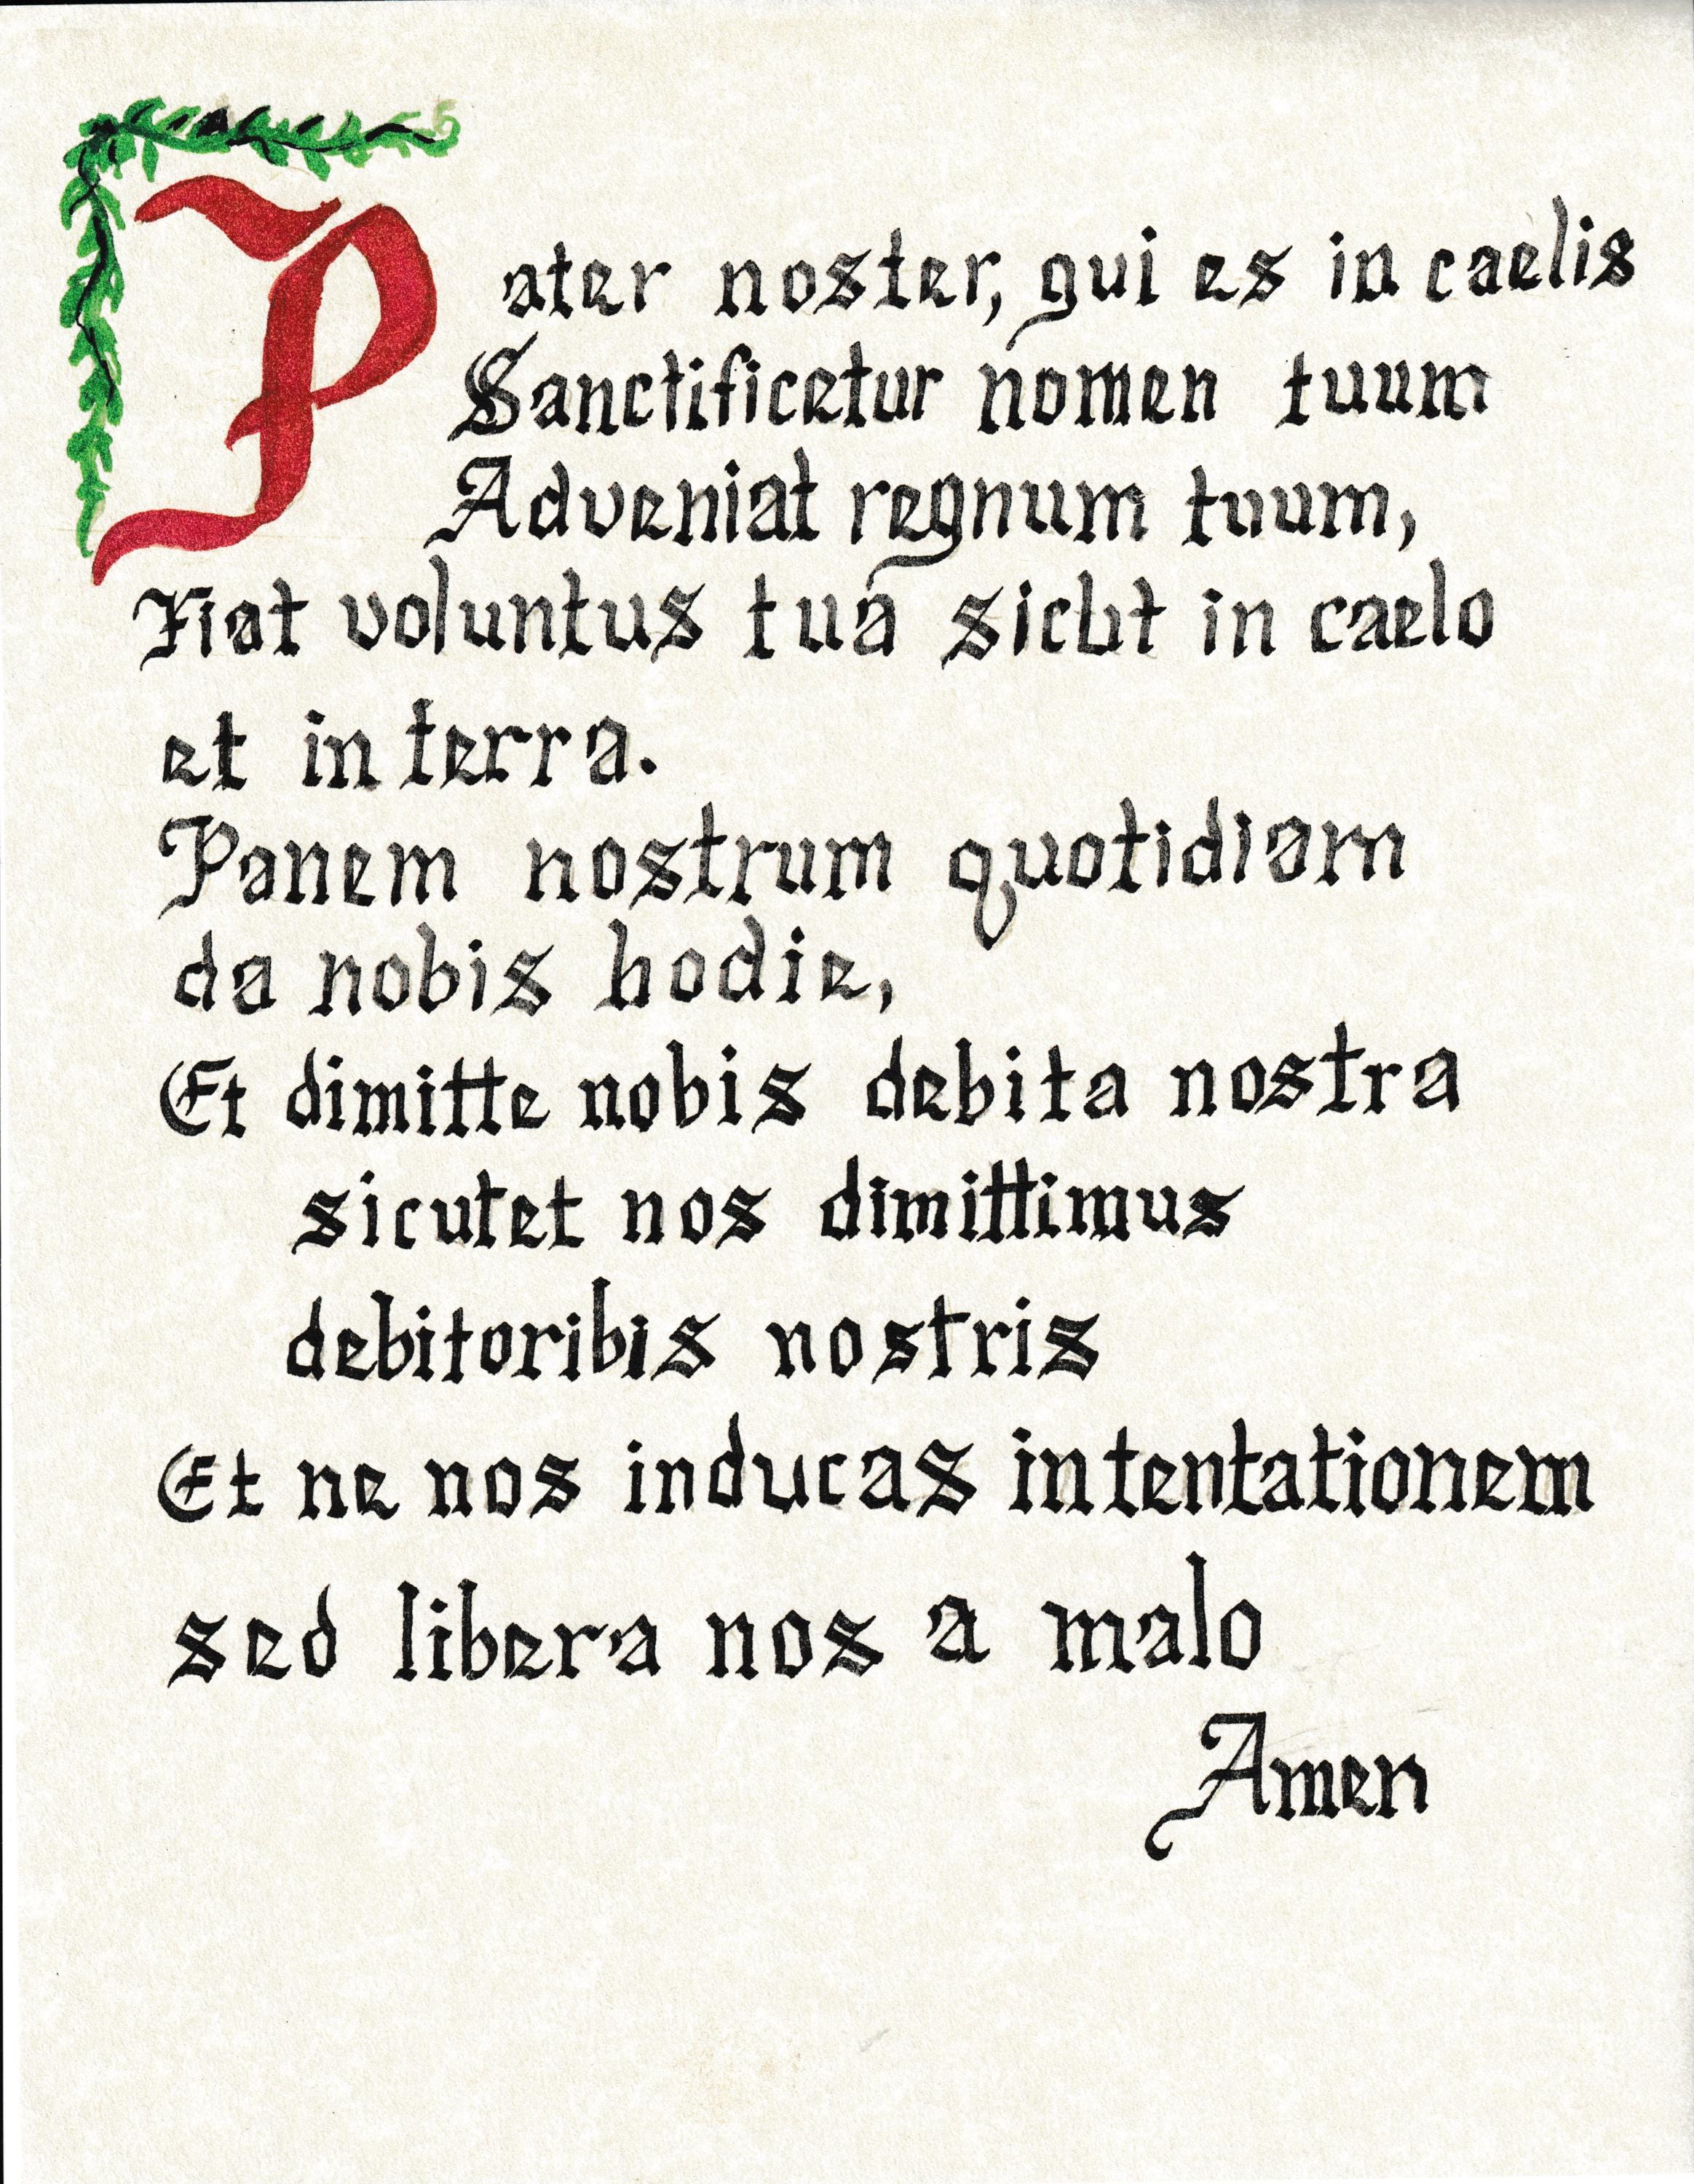 Pater noster, qui es in caelis
Sanctificetur nomen tuum
Adveniat regnum tuum,
Fiat voluntus tua sicut in caelo
et in terra.
Panem nostrum quotidiam
da nobis hodie,
Et dimitte nobis debita nostra
sicutet nos dimittimus
debitoribis nostris
Et ne nos inducas intentationem
sed libera nos a malo
Amen